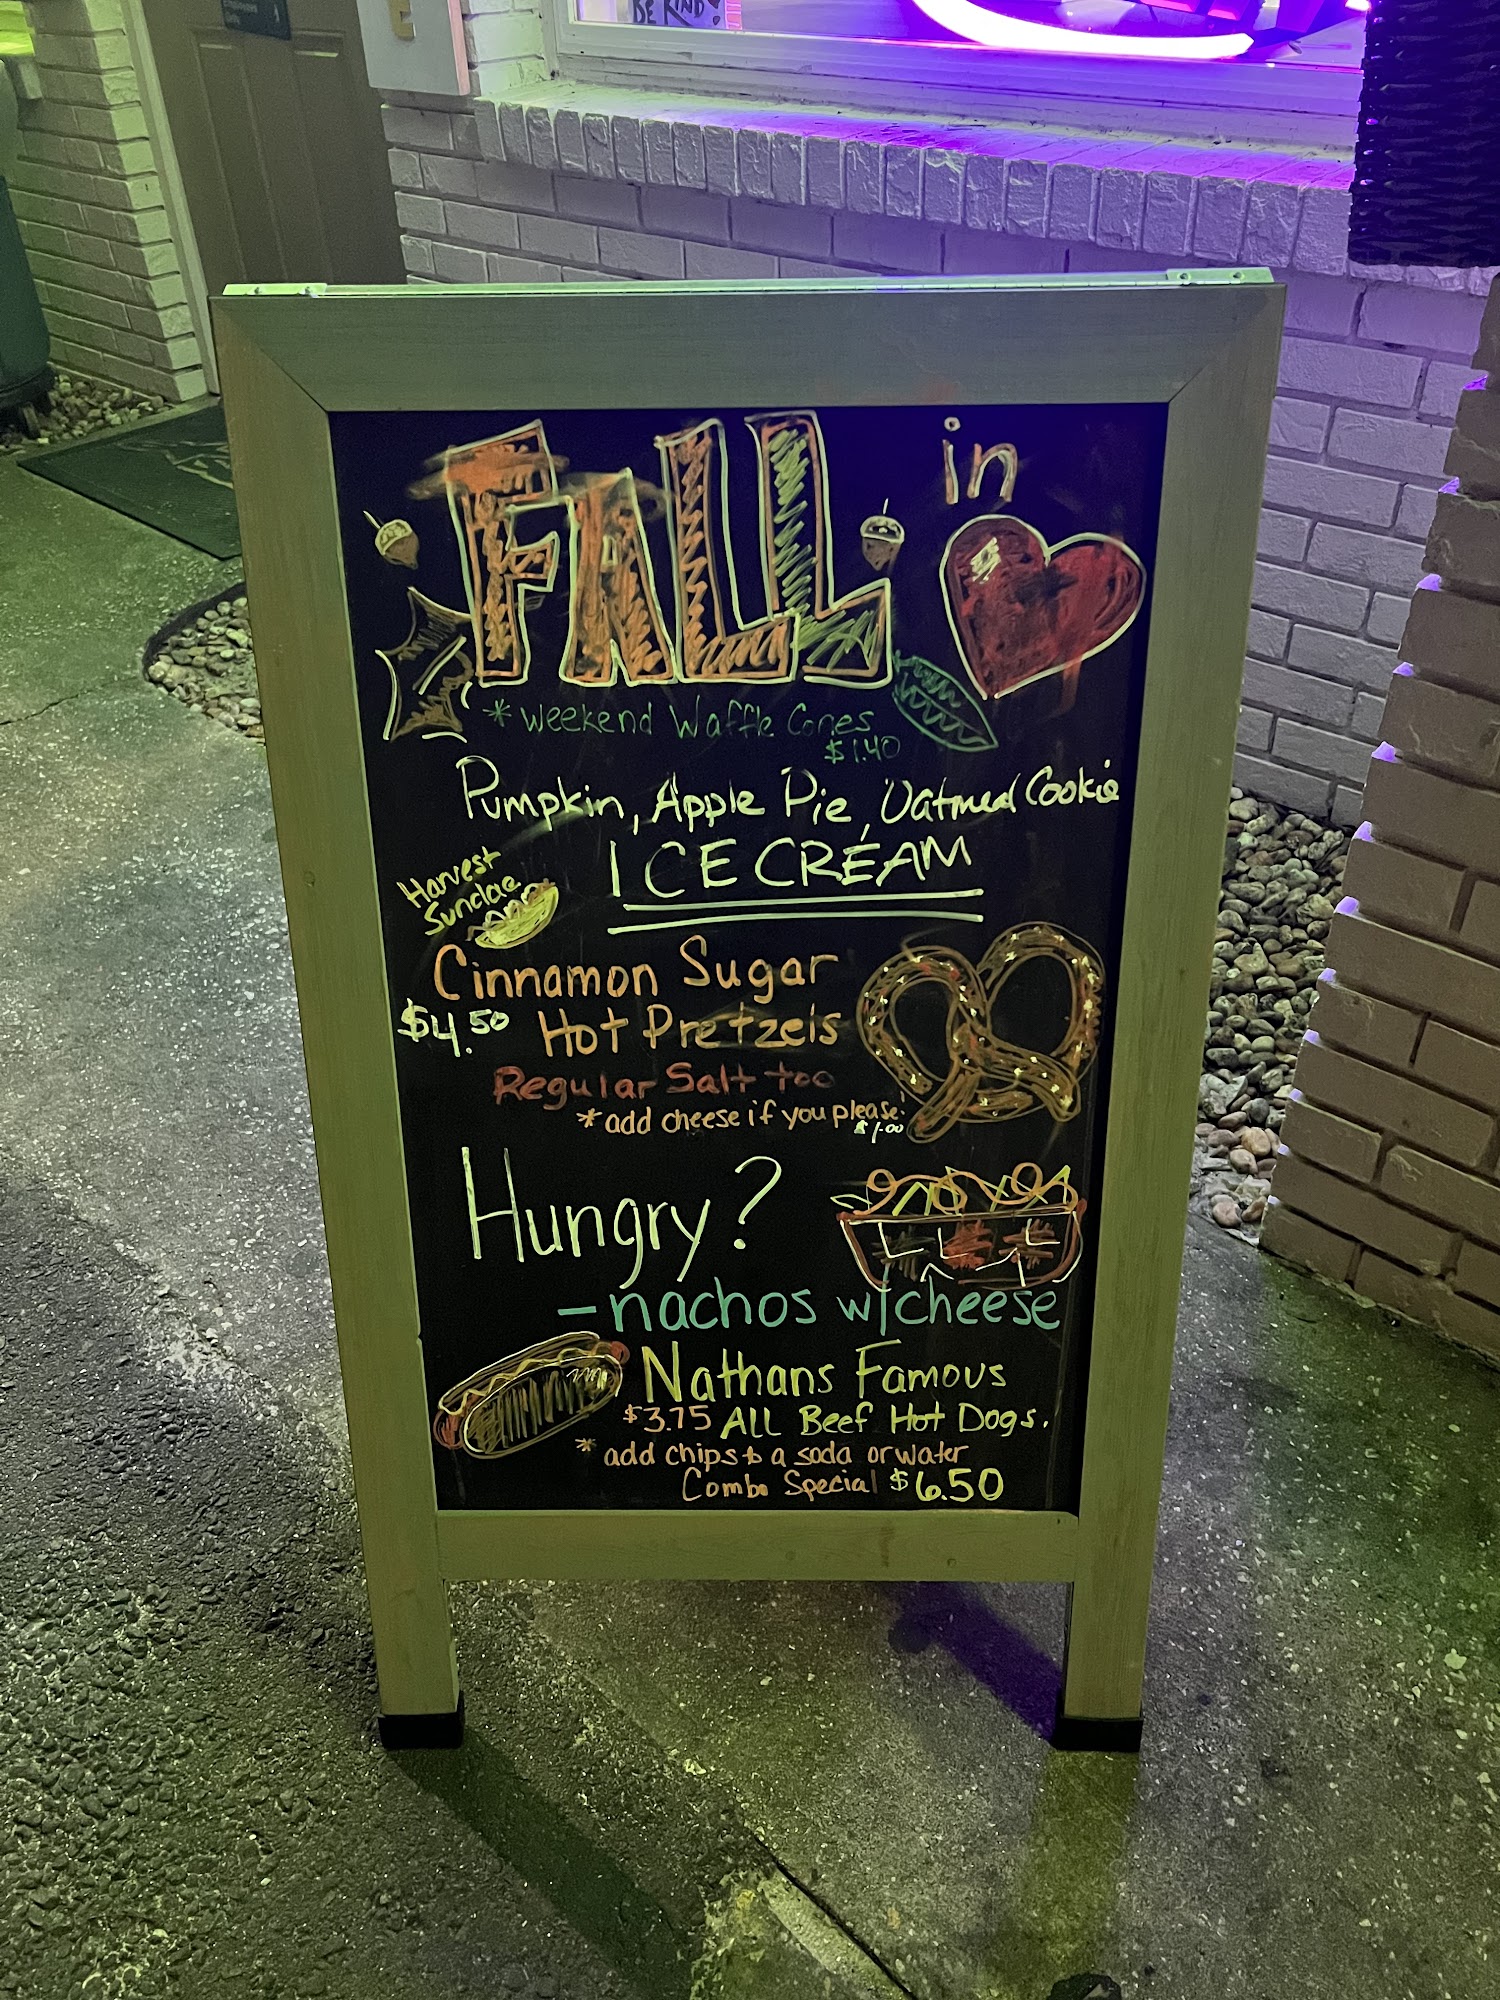 BE KIND
FALL in
* Weekend Waffle Cones
$1.40
Pumpkin, Apple Pie, Oatmeal Cookie
ICE CREAM
Harvest
Sundae
Cinnamon Sugar
$4.50 Hot Pretzels
Regular Salt too
* add cheese if you please!
$1.00
Hungry?
- nachos w/cheese
Nathans Famous
$3.75 ALL Beef Hot Dogs.
* add chips & a soda or water
Combo Special $6.50